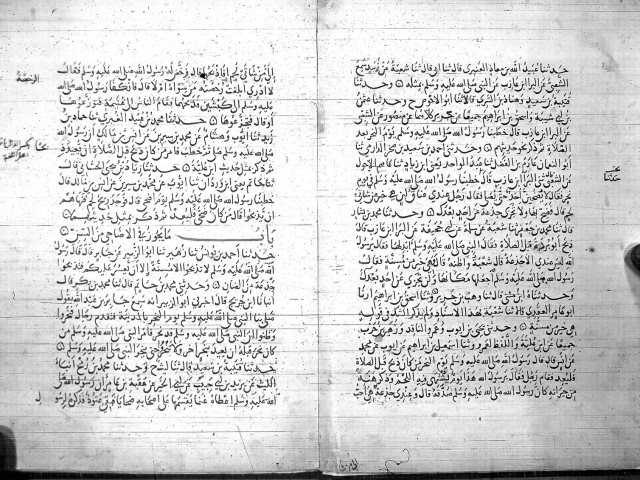 حدثنا عبيد الله بن معاذ العنبري قال ثنا ابي قال ثنا شعبة عن زبيد سمع
الشعبي عن البراء بن عازب عن النبي صلى الله عليه وسلم بمثله وحدثنا
قتيبة بن سعيد وهناد بن السري قالا ثنا ابو الاحوص ح وحدثنا عثمن
بن ابي شيبة واسحق بن ابراهيم جميعا عن جرير كلاهما عن منصور عن الشعبي
عن البراء بن عازب قال خطبنا رسول الله صلى الله عليه وسلم يوم النحر بعد
الصلاة ثم ذكر نحو حديثهم وحدثني احمد بن سعيد بن صخر الدارمي ثنا
ابو النعمان عارم بن الفضل ثنا عبد الواحد يعني ابن زياد ثنا عاصم الاحول
عن الشعبي ثنا البراء بن عازب قال خطبنا رسول الله صلى الله عليه وسلم في يوم
نحر فقال لا يضحين احد حتى يصلي قال رجل عندي عناق لبن هي خير من شاتي
لحم قال فضح بها ولا تجزي جذعة عن احد بعدك وحدثنا محمد بن بشار
قال ثنا محمد بن جعفر ثنا شعبة عن سلمة عن ابي جحيفة عن البراء بن عازب قال
ذبح ابو بردة قبل الصلاة فقال النبي صلى الله عليه وسلم ابدلها فقال يرسول
الله ليس عندي الا جذعة قال شعبة واظنه قال هي خير من مسنة فقال
رسول الله صلى الله عليه وسلم اجعلها مكانها ولن تجزي عن احد بعدك
وحدثناه ابن مثنى قال ثنا وهب بن جرير ح وثنا اسحق بن ابراهيم انا
ابو عامر العقدي قال ثنا شعبة بهذا الاسناد ولم يذكر الشك في قوله
هي خير من مسنة وحدثني يحيى بن ايوب وعمرو الناقد وزهير بن حرب
جميعا عن ابن علية واللفظ لعمرو وثنا اسمعيل بن ابراهيم عن ايوب عن محمد
عن انس قال قال رسول الله صلى الله عليه وسلم يوم النحر من كان ذبح قبل الصلاة
فليعد فقام رجل فقال يرسول الله هذا يوم يشتهى فيه اللحم وذكر هنة
من جيرانه كان رسول الله صلى الله عليه وسلم صدقه قال وعندي جذعة هي احب
نحر
حدثنا
الي من شاتي لحم افاذبحها قال فرخص له رسول الله صلى الله عليه وسلم فقال
لا ادري ابلغت رخصته من سواه ام لا قال فانكفأ رسول الله صلى الله
عليه وسلم الى كبشين فذبحهما فقام الناس الى غنيمة فتوزعوها
او قال فتجزعوها وحدثنا محمد بن عبيد الغبري ثنا حماد بن
زيد ثنا ايوب وهشام عن محمد بن سيرين عن انس بن مالك ان رسول الله
صلى الله عليه وسلم صلى ثم خطب فامر من كان ذبح قبل الصلاة ان يعيد
ثم ذكر مثل حديث ابن علية وحدثنا زياد بن يحيى الحساني قال
ثنا حاتم يعني ابن وردان ثنا ايوب عن محمد بن سيرين عن انس بن مالك قال
خطبنا رسول الله صلى الله عليه وسلم يوم اضحى قال فوجد ريح لحم فنهاهم عن
ان يذبحوا قال من كان ضحى فليعد ثم ذكر بمثل حديثهما
باب ما يجوز في الاضاحي من السن
حدثنا احمد بن يونس ثنا زهير ثنا ابو الزبير عن جابر قال قال رسول
الله صلى الله عليه وسلم لا تذبحوا الا مسنة الا ان يعسر عليكم فتذبحوا
جذعة من الضان وحدثني محمد بن حاتم قال ثنا محمد بن بكر قال
انبانا ابن جريج قال اخبرني ابو الزبير انه سمع جابر بن عبد الله يقول
صلى بنا النبي صلى الله عليه وسلم يوم النحر بالمدينة فتقدم رجال فنحروا
وظنوا ان النبي صلى الله عليه وسلم قد نحر فامر النبي صلى الله عليه وسلم من
كان نحر قبله ان يعيد بنحر اخر ولا ينحروا حتى ينحر النبي صلى الله عليه وسلم
حدثنا قتيبة بن سعيد قال ثنا الليث ح وحدثنا محمد بن رمح انباه
الليث عن يزيد بن ابي حبيب عن ابي الخير عن عقبة بن عامر ان رسول الله صلى
الله عليه وسلم اعطاه غنما يقسمها على اصحابه ضحايا فبقي عتود فذكره لرسول
الرخصة